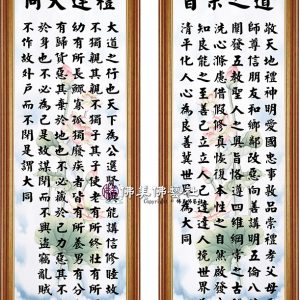 道之宗旨
敬天地禮神明愛國忠事敦品崇禮孝父母重
師尊信朋友和鄉鄰改惡向善講明五倫八德
闡發五教聖人之奧旨恪遵四維綱常之古禮
洗心滌慮借假修真恢復本性之自然啟發良
知良能之至善己立立人己達達人挽世界為
清平化人心為良善冀世界為大同
禮運大同
大道之行也天下為公選賢與能講信修睦故人
不獨親其親不獨子其子使老有所終壯有所用
幼有所長鰥寡孤獨廢疾者皆有所養男有分女
有歸貨惡其棄於地也不必藏於己力惡其不出
於身也不必為己是故謀閉而不興盜竊亂賊而
不作故外戶而不閉是謂大同
Copyright